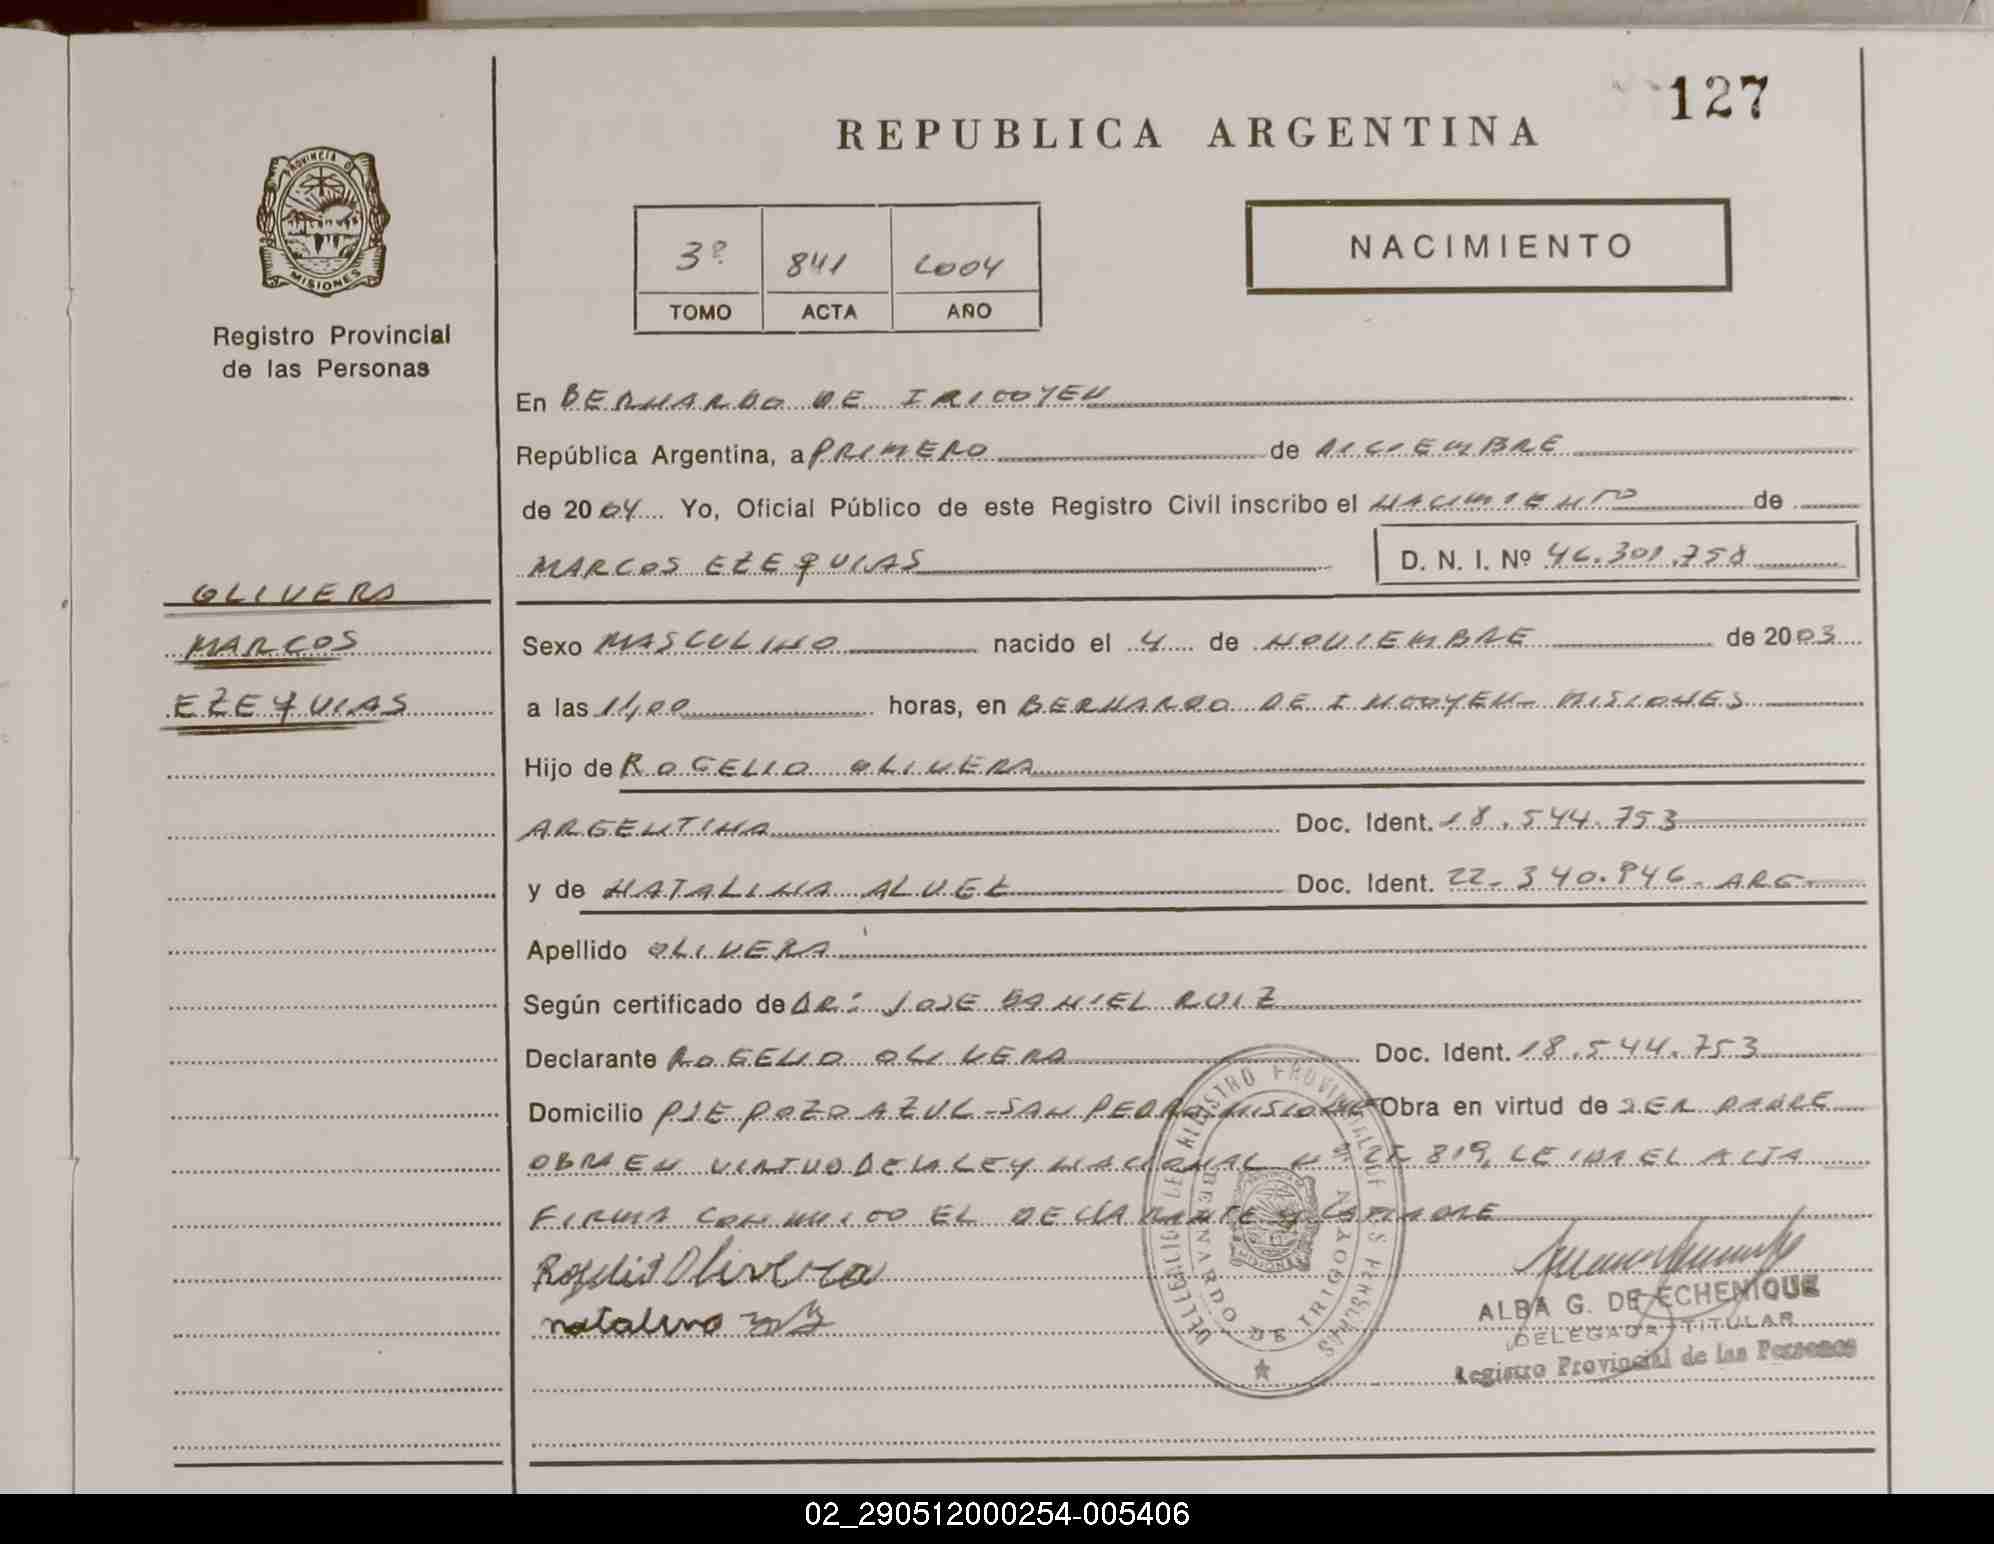 127
REPUBLICA ARGENTINA
PROVINCIA DE
MISIONES
Registro Provincial
de las Personas
3º 841 2004
TOMO ACTA AÑO
NACIMIENTO
En BERNARDO DE IRIGOYEN
República Argentina, a PRIMERO de DICIEMBRE
de 2004 Yo, Oficial Público de este Registro Civil inscribo el NACIMIENTO de
MARCOS EZEQUIAS D. N. I. Nº 46.301.758
OLIVERA
MARCOS
EZEQUIAS
Sexo MASCULINO nacido el 4 de NOVIEMBRE de 2003
a las 11,00 horas, en BERNARDO DE IRIGOYEN - MISIONES
Hijo de ROGELIO OLIVERA
ARGENTINA Doc. Ident. 18.544.753
y de NATALINA ALVEZ Doc. Ident. 22.340.846 - ARG -
Apellido OLIVERA
Según certificado de DR: JOSE DANIEL RUIZ
Declarante ROGELIO OLIVERA Doc. Ident. 18.544.753
Domicilio PJE POZO AZUL - SAN PEDRO MISIONES Obra en virtud de SER PADRE
OBRA EN VIRTUD DE LA LEY NACIONAL Nº 819, LEIDA EL ACTA
FIRMA CONMIGO EL DECLARANTE Y LA MADRE
Rogelio Olivera
natalina
REGISTRO PROVINCIAL DE LAS PERSONAS
BERNARDO DE IRIGOYEN
ALBA G. DE ECHENIQUE
DELEGADA TITULAR
Registro Provincial de las Personas
02_290512000254-005406